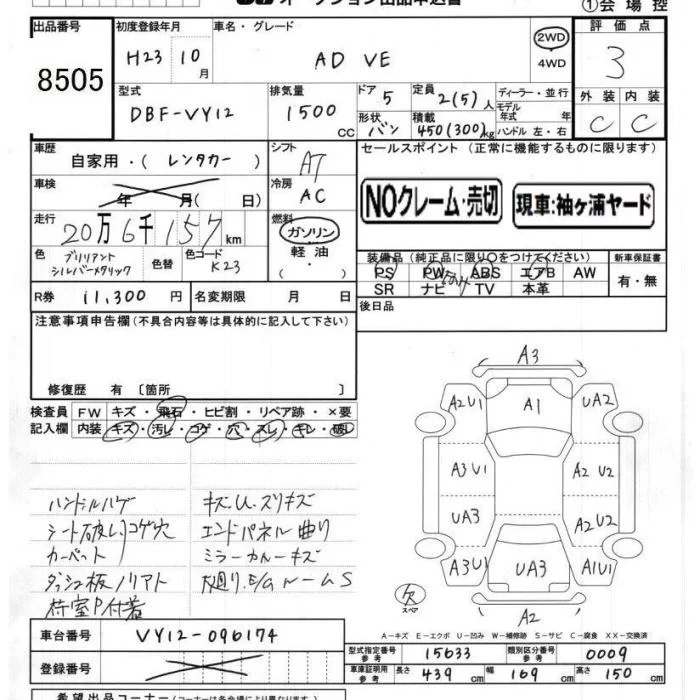 オークション出品申込書
①会場控
出品番号 8505
初度登録年月 H23 10月
車名・グレード AD VE
2WD
4WD
評価点 3
型式 DBF-VY12
排気量 1500cc
ドア 5
形状 バン
定員 2(5)人
積載 450(300)kg
ディーラー・並行
モデル年式 年式
ハンドル 左・右
外装 C
内装 C
車歴 自家用・(レンタカー)
シフト AT
車検 年 月( 日)
冷房 AC
走行 20万6千157km
燃料 ガソリン
軽油
色 ブリリアントシルバーメタリック
色替
色コード K23
セールスポイント(正常に機能するものに限ります)
NOクレーム・売切
現車:袖ヶ浦ヤード
装備品(純正品に限り○をつけてください)
PS PW ABS エアB AW
SR ナビ TV 本革
新車保証書
有・無
R券 11,300円
名変期限 月 日
後日品
注意事項申告欄(不具合内容等は具体的に記入して下さい)
修復歴 有〔箇所 〕
検査員記入欄
FW キズ・飛石・ヒビ割・リペア跡・×要
内装 キズ・汚レ・コゲ・穴・スレ・キレ・破レ
ハンドルハゲ
シート破レ コゲ穴
カーベット
ダッシュ板ノリアト
荷室P付着
キズ.U.スリキズ
エンドパネル曲り
ミラーカバーキズ
下廻り.E/GルームS
A3
A2U1 A1 UA2
A3U1 A2U2
UA3 A2U2
A3U1 UA3 A1U1
欠
スペア
A2
A―キズ E―エクボ U―凹み W―補修跡 S―サビ C―腐食 XX―交換済
車台番号 VY12-096174
登録番号
型式指定番号 参考 15633
類別区分番号 参考 0009
車庫証明用 参考 長さ 439cm 幅 169cm 高さ 150cm
希望出品コーナー